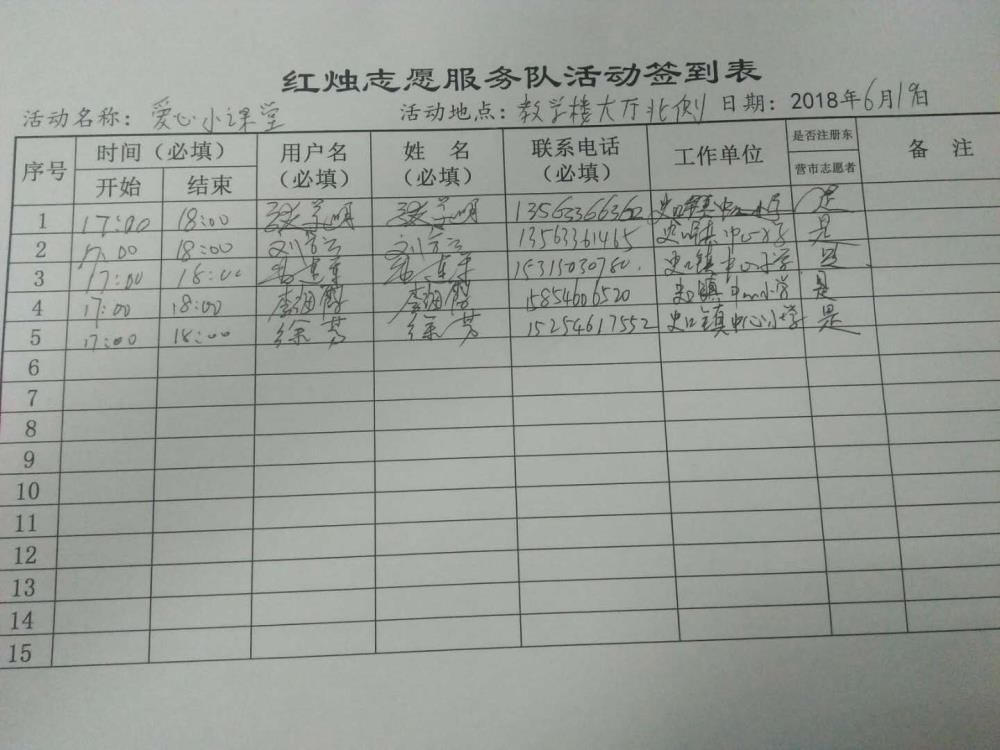 红烛志愿服务队活动签到表
活动名称：爱心小课堂 活动地点：教学楼大厅北侧 日期：2018年6月19日
序号 时间（必填） 用户名（必填） 姓名（必填） 联系电话（必填） 工作单位 是否注册东营市志愿者 备注
开始 结束
1 17:00 18:00 张学明 张学明 13563366362 史口镇中心小学 是
2 17:00 18:00 刘 刘 13563361465 史口镇中心小学 是
3 17:00 18:00 15315030780 史口镇中心小学 是
4 17:00 18:00 李 李 15854606520 史口镇中心小学 是
5 17:00 18:00 徐芳 徐芳 15254617552 史口镇中心小学 是
6
7
8
9
10
11
12
13
14
15